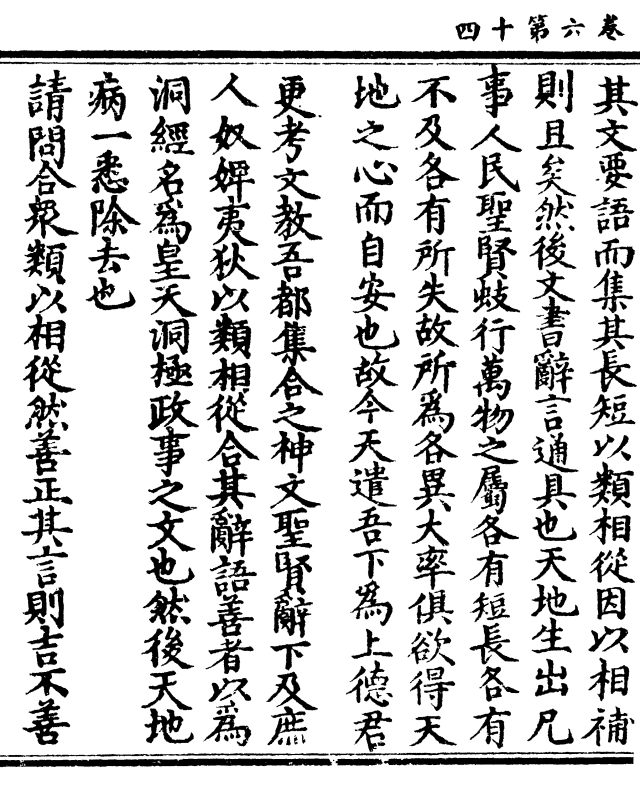 卷六第十四
其文要語而集其長短以類相從因以相補
則且矣然後文書辭言通具也天地生出凡
事人民聖賢蚑行萬物之屬各有短長各有
不及各有所失故所爲各異大率俱欲得天
地之心而自安也故今天遣吾下爲上德君
更考文教吾都集合之神文聖賢辭下及庶
人奴婢夷狄以類相從合其辭語善者以爲
洞經名爲皇天洞極政事之文也然後天地
病一悉除去也
請問合衆類以相從然善正其言則吉不善